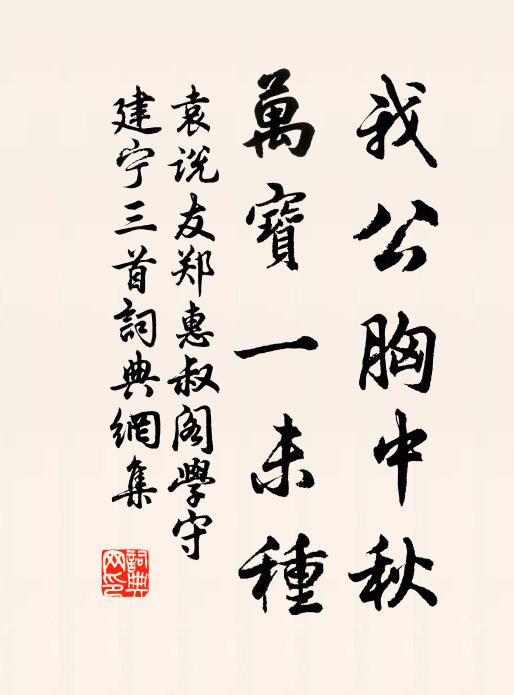 我公胸中秋
萬寶一未種
袁说友郑惠叔阁學守
建宁三首詞典網集
詞典网印